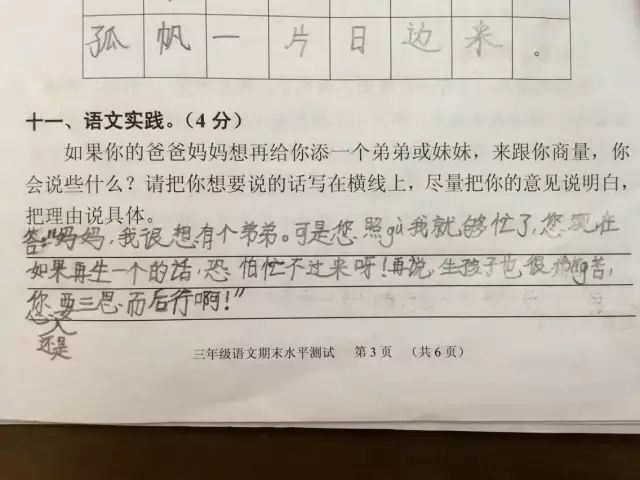 孤帆一片日边来。
十一、语文实践。（4 分）
如果你的爸爸妈妈想再给你添一个弟弟或妹妹，来跟你商量，你
会说些什么？请把你想要说的话写在横线上，尽量把你的意见说明白，
把理由说具体。
答:“妈妈,我很想有个弟弟。可是您照gù我就够忙了,您现在
如果再生一个的话,恐怕忙不过来呀!再说,生孩子也很痛苦,
您要三思而后行啊!”
还是
三年级语文期末水平测试 第 3 页 （共 6 页）